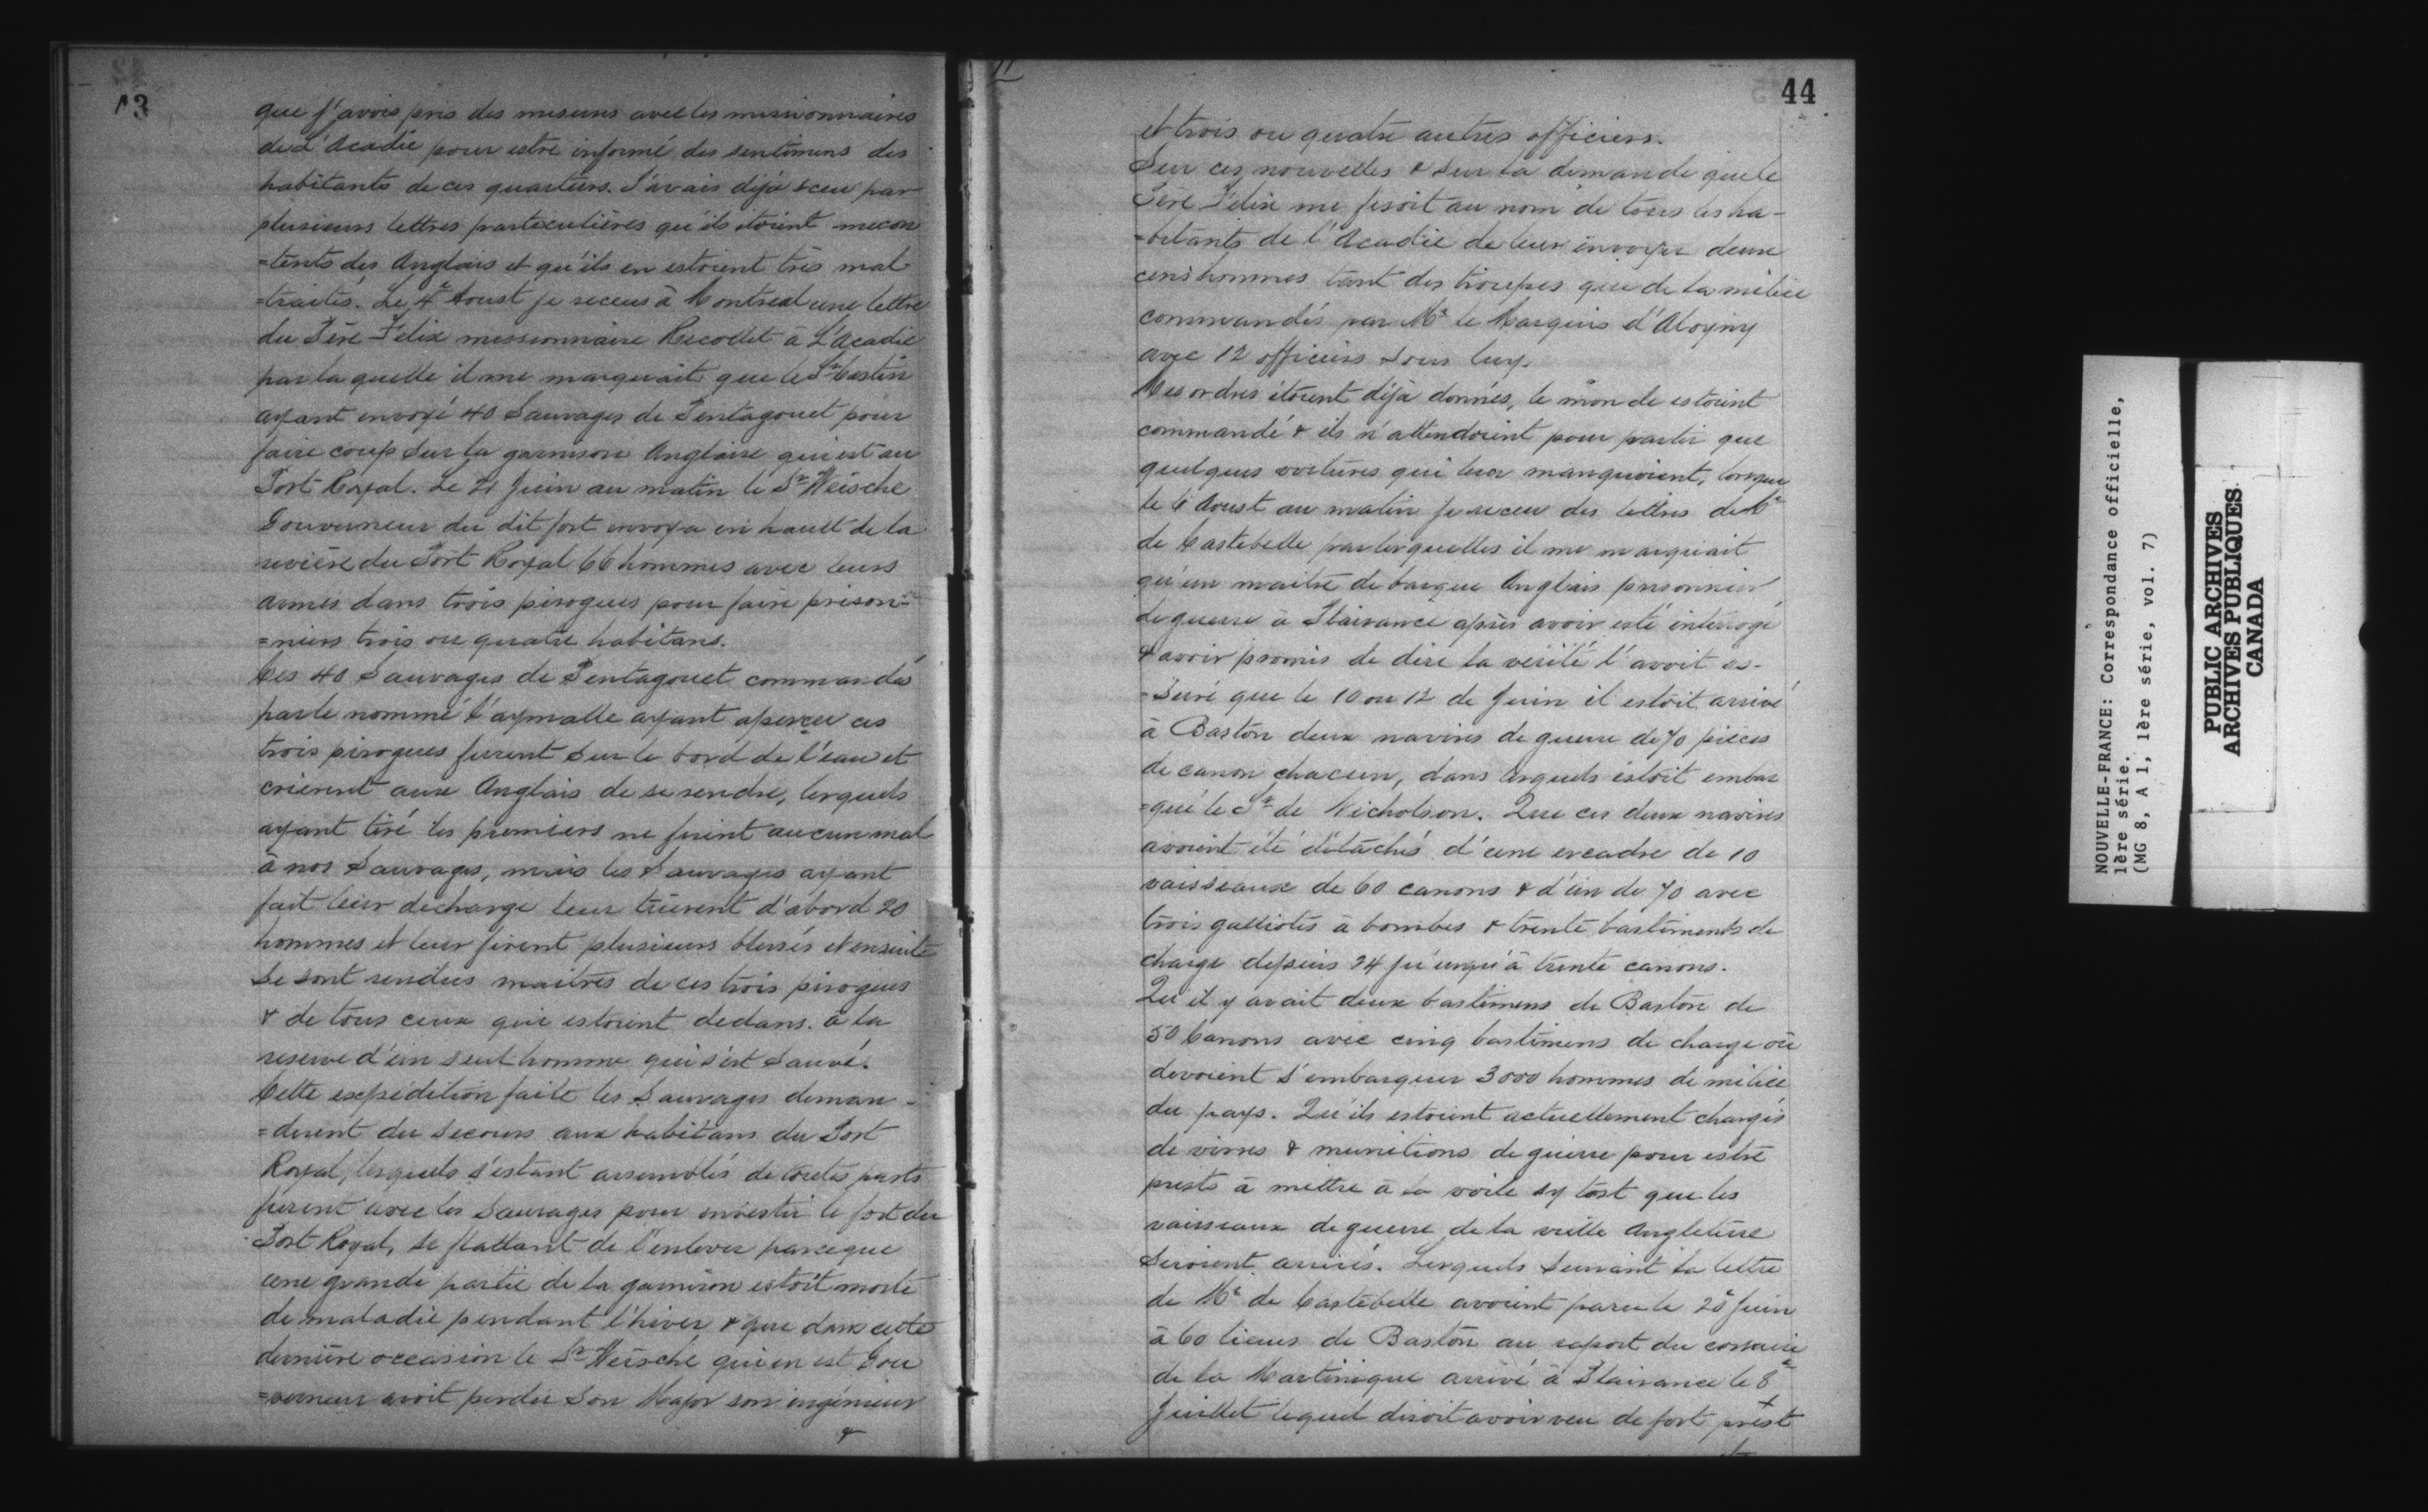 43
que j'avois pris des mesures avec les missionnaires
de L'Acadie pour estre informé des sentimens des
habitants de ces quartiers. J'avais déjà sceu par
plusieurs lettres particulières qu'ils étoient mecon
=tents des Anglois et qu'ils en estoient très mal
=traités. Le 4e Aoust je receus à Montreal une lettre
du Père Felix missionnaire Recollet à L'Acadie
par laquelle il me marquait que le Sr Castin
ayant envoyé 40 Sauvages de Pentagouet pour
faire coup sur la garnison Anglaise qui est au
Port Royal. Le 21 Juin au matin le Sr Weische
Gouverneur du dit fort envoya en hault de la
rivière du Port Royal 66 hommes avec leurs
armes dans trois pirogues pour faire prison=
=niers trois ou quatre habitans.
Ces 40 Sauvages de Pentagouet commandés
par le nommé l'aymalle ayant apercu ces
trois pirogues furent sur le bord de l'eau et
crièrent aux Anglais de se rendre, lesquels
ayant tiré les premiers ne firent aucun mal
à nos Sauvages, mais les Sauvages ayant
fait leur décharge leur tuèrent d'abord 20
hommes et leur firent plusieurs blessés et ensuite
se sont rendus maitres de ces trois pirogues
& de tous ceux qui estoient dedans. à la
reserve d'un seul homme qui s'est sauvé.
Cette expédition faite les Sauvages deman-
=dèrent du secours aux habitans du Port
Royal, lesquels s'estant assemblés de toutes parts
furent avec les Sauvages pour investir le fort du
Port Royal, se flattant de l'enlever parceque
une grande partie de la garnison estoit morte
de maladie pendant l'hiver & que dans cette
dernière occasion le Sr Weisché qui en est Gou
=verneur avoit perdu son Major son ingénieur
&
44
et trois ou quatre autres officiers.
Sur ces nouvelles & sur la demande que le
Père Felix me fesoit au nom de tous les ha-
=bitants de l'Acadie de leur envoyer deux
cens hommes tant des troupes que de la milice
commandés par Mr le Marquis d'Alogny
avec 12 officiers sous luy.
Mes ordres étoient déjà donnés, le monde estoient
commandé & ils n'attendoient pour partir que
quelques voitures qui leur manquoient, lorsque
le 6 Aoust au matin je receu des lettres de Mr
de Castebelle par lesquelles il me marquait
qu'un maitre de barque Anglais prisonnier
de guerre à Plaisance après avoir esté interrogé
& avoir promis de dire la vérité l'avoit as-
=suré que le 10 ou 12 de Juin il estoit arrivé
à Baston deux navires de guerre de 70 pièces
de canon chacun, dans lesquels estoit embar
=qué le Sr de Nicholson. Que ces deux navires
avoient été détachés d'une escadre de 10
vaisseaux de 60 canons & d'un de 70 avec
trois galliotes à bombes & trente bastiments de
charge depuis 24 ju'usqu'à trente canons.
Qu'il y avait deux bastimens de Baston de
50 Canons avec cinq bastimens de charge où
devoient s'embarquer 3000 hommes de milice
du pays. Qu'ils estoient actuellement chargés
de vivres & munitions de guerre pour estre
prests à mettre à la voile sy tost que les
vaisseaux de guerre de la vielle Angleterre
seroient arrivés. Lesquels suivant la lettre
de Mr de Castebelle avoient paru le 20e Juin
à 60 lieues de Baston au raport du corsaire
de la Martinique arrivé à Plaisance le 8e
Juillet lequel disoit avoir veu de fort prest
NOUVELLE-FRANCE: Correspondance officielle,
1ère série.
(MG 8, A 1, 1ère série, vol. 7)
PUBLIC ARCHIVES
ARCHIVES PUBLIQUES
CANADA